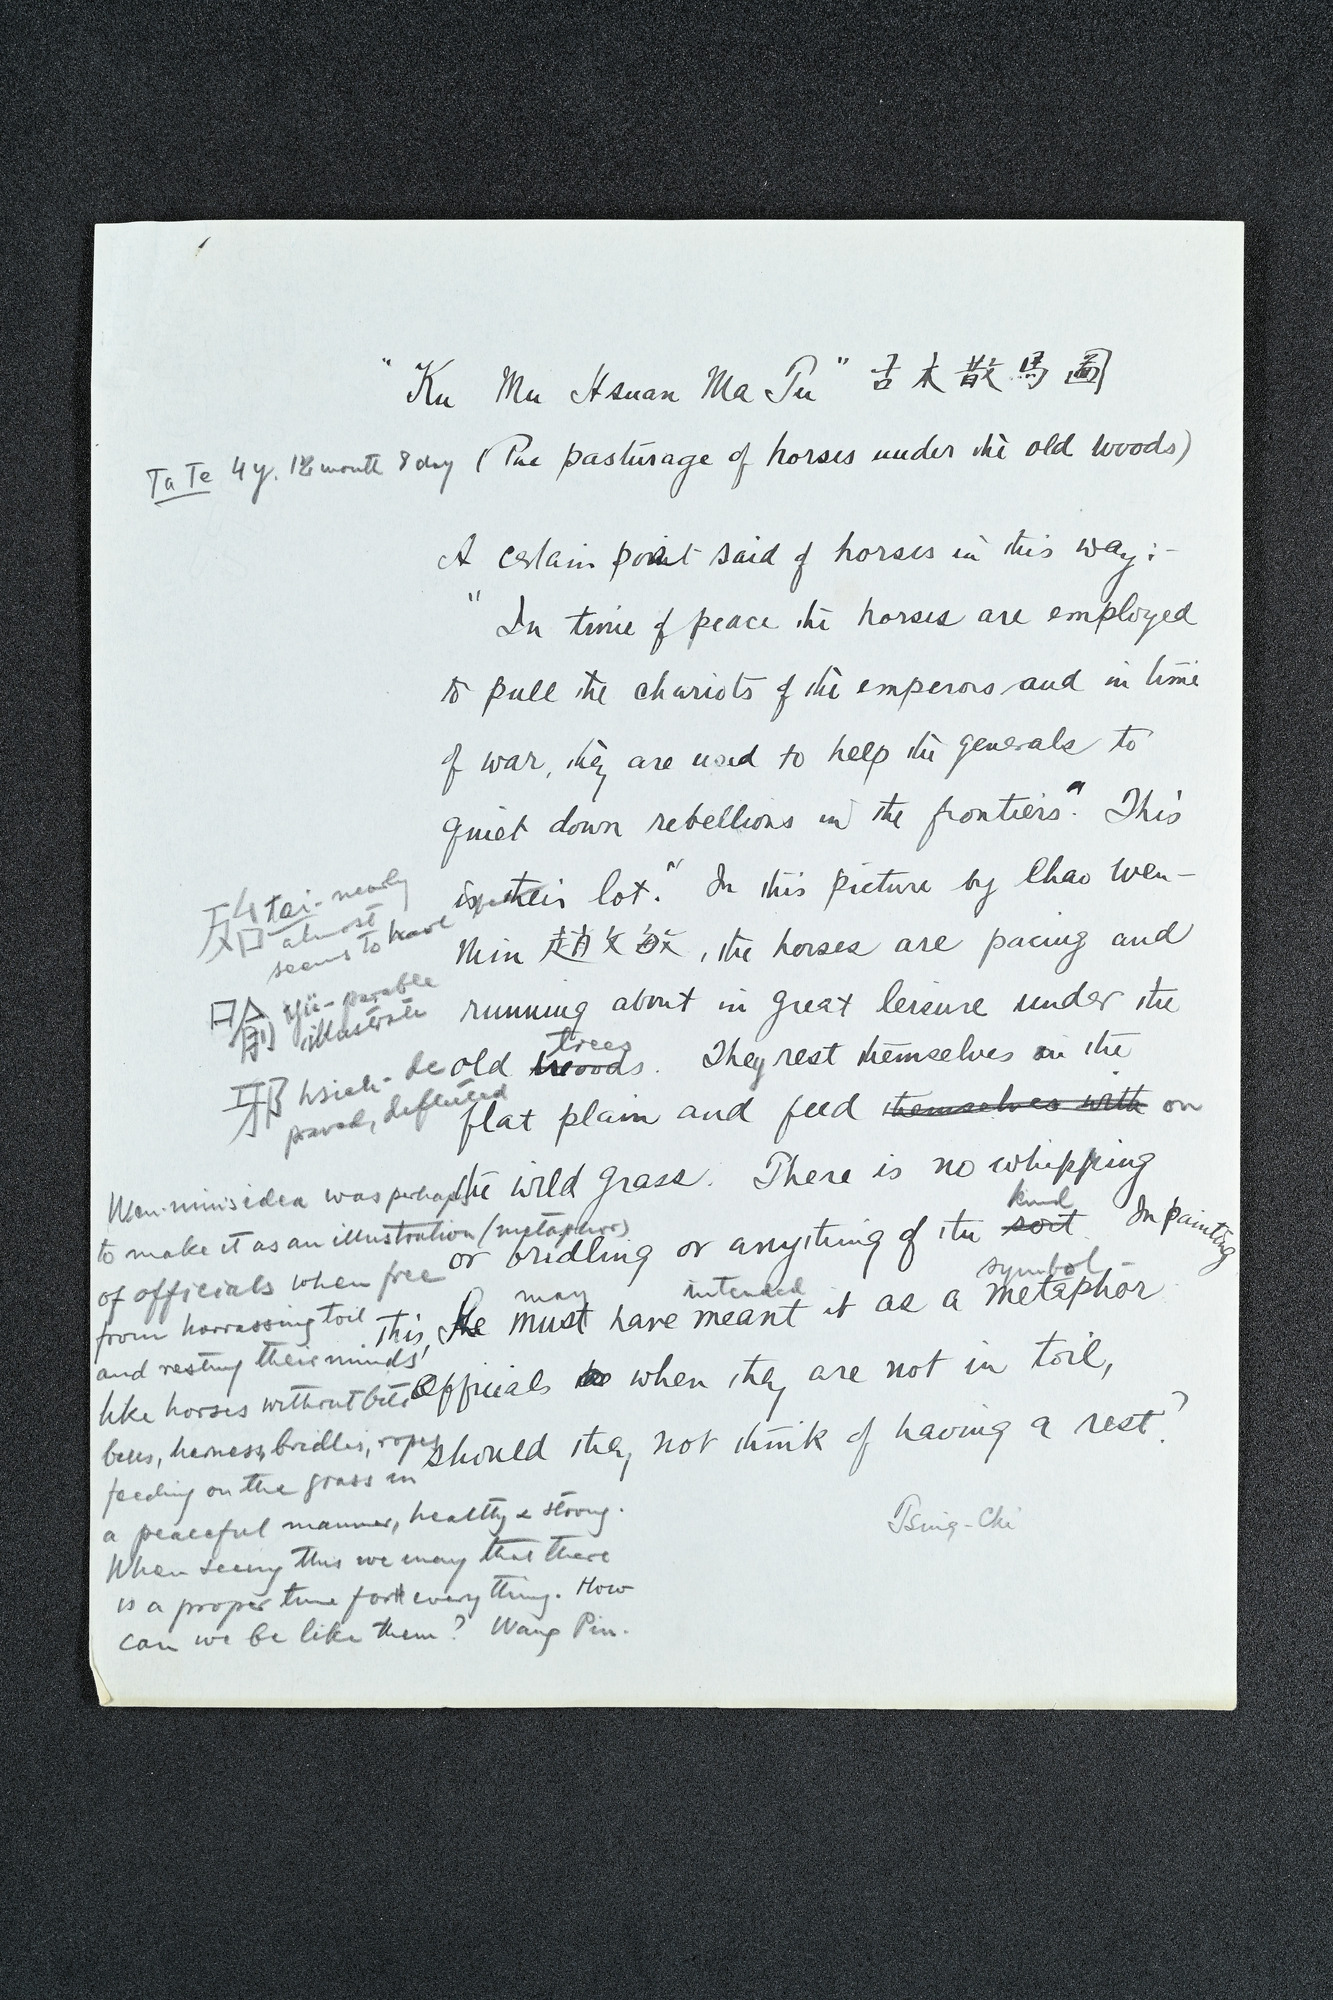 "Ku Mu Hsuan Ma Tu" 古木散馬圖
Ta Te 4 y. 12 month 8 day
(The pasturage of horses under the old woods)
A certain poet said of horses in this way:-
"In time of peace the horses are employed
to pull the chariots of the emperors and in time
of war, they are used to help the generals to
quiet down rebellions in the frontiers." This
is their lot." In this picture by Chao Wen-
Min 趙文敏, the horses are pacing and
running about in great leisure under the
old woods trees. They rest themselves on the
flat plain and feed themselves with on
the wild grass. There is no whipping
or bridling or anything of the sort kind. In painting
this, he must may have meant intended it as a metaphor symbol-
Officials when they are not in toil,
should they not think of having a rest?
Tsing-Chi
殆 tai - nearly
almost
seems to have
喻 yü - parable
illustrate
邪 hsieh - de
praved, deflected
Wen-min's idea was perhaps
to make it as an illustration (metaphor)
of officials when free
from harrassing toil
and resting their minds'
like horses without bits
bells, harness, bridles, ropes
feeding on the grass in
a peaceful manner, healthy & strong.
When seeing this we may that there
is a proper time for everything. How
can we be like them? Wang Pin.